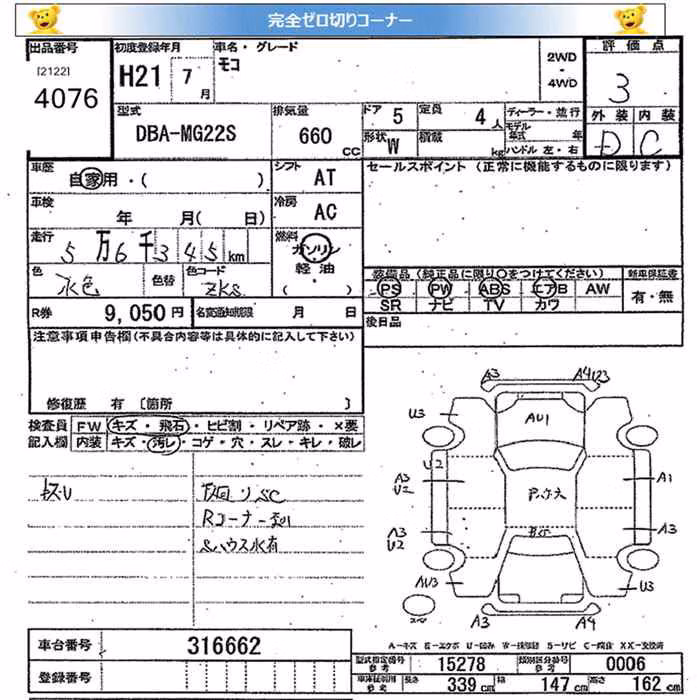 完全ゼロ切りコーナー
出品番号 [2122] 4076
初度登録年月 H21 7月
車名・グレード モコ
2WD・4WD
評価点 3
外装 D 内装 C
型式 DBA-MG22S
排気量 660 CC
ドア 5 定員 4人
形状 W 積載 kg
ディーラー・並行
モデル年式 年
ハンドル 左・右
車歴 自家用・( )
シフト AT
セールスポイント(正常に機能するものに限ります)
車検 年 月( 日)
冷房 AC
走行 5万6千345km
燃料 ガソリン 軽油 ( )
色 水色 色替 色コード ZKS
装備品(純正品に限り○をつけてください) 新車保証書
PS PW ABS エアB AW 有・無
SR ナビ TV カワ
R券 9,050円 名変通知期限 月 日
後日品
注意事項申告欄(不具合内容等は具体的に記入して下さい)
修復歴 有 [箇所 ]
検査員記入欄 FW キズ・飛石・ヒビ割・リペア跡・×要
内装 キズ・汚レ・コゲ・穴・スレ・キレ・破レ
Rコーナー
A3 A4 U3
U3 AU1
U2
A3 U2 A1
A3 U2 A3
AU3 U3
A3 A4
A-キズ E-エクボ U-凹み W-補修跡 S-サビ C-腐蝕 XX-交換済
車台番号 316662
型式指定番号 参考 15278 類別区分番号 参考 0006
登録番号
車庫証明用 参考 長さ 339cm 幅 147cm 高さ 162cm